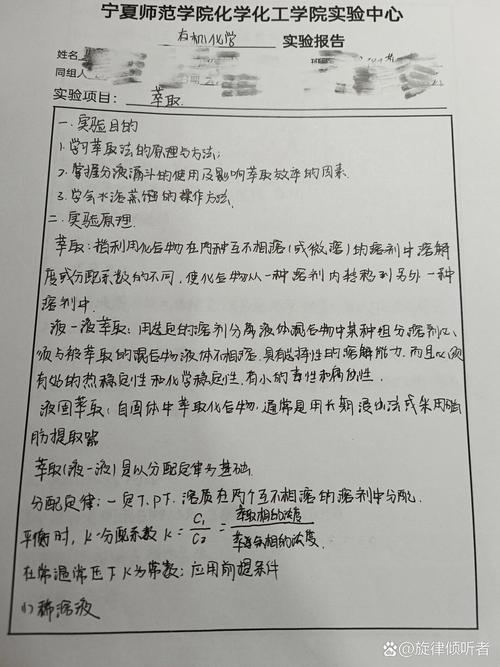 宁夏师范学院化学化工学院实验中心
有机化学 实验报告
姓名
同组人
实验项目: 萃取.
一. 实验目的
1. 学习萃取法的原理与方法;
2. 掌握分液漏斗的使用及影响萃取效率的因素.
3. 学会水浴蒸馏的操作方法.
二. 实验原理.
萃取: 指利用化合物在两种互不相溶(或微溶)的溶剂中溶解
度或分配系数的不同, 使化合物从一种溶剂内转移到另外一种
溶剂中.
液一液萃取: 用选定的溶剂分离液体混合物中某种组分溶剂必
须与被萃取的混合物液体不相溶. 具有选择性的溶解能力. 而且必须
有好的热稳定性和化学稳定性. 有小的毒性和腐蚀性.
液固萃取: 自固体中萃取化合物, 通常是用长期浸出法或采用脂
肪提取器
萃取(液一液)是以分配定律为基础.
分配定律: 一定T.P.T. 溶质在两个互不相溶的溶剂中分配.
平衡时, K-分配系数 K = C₁/C₂ = 萃取相的浓度/萃余相的浓度.
在常温常压下K为常数; 应用前提条件
(1) 稀溶液
旋律倾听者